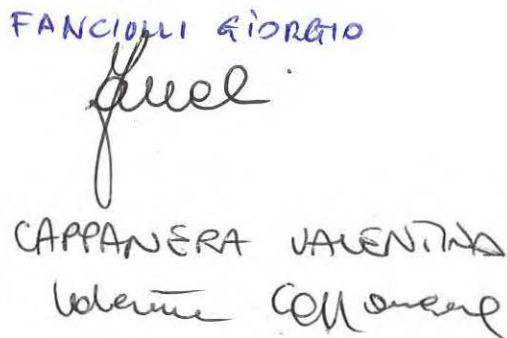 FANCIULLI GIORGIO
CAPPANERA VALENTINA
Valentina Cappanera